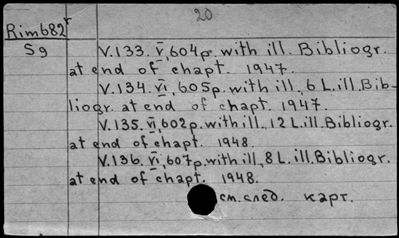 20
Rim682r
Sg
V.133. V̅, 604p. with ill. Bibliogr.
at end of chapt. 1947.
V.134. V̅I̅, 605p. with ill., 6 L. ill. Bib-
liogr. at end of chapt. 1947.
V.135. V̅I̅, 602p. with ill., 12 L. ill. Bibliogr.
at end of chapt. 1948.
V.136. V̅I̅, 607p. with ill., 8 L. ill. Bibliogr.
at end of chapt. 1948.
см. след. карт.